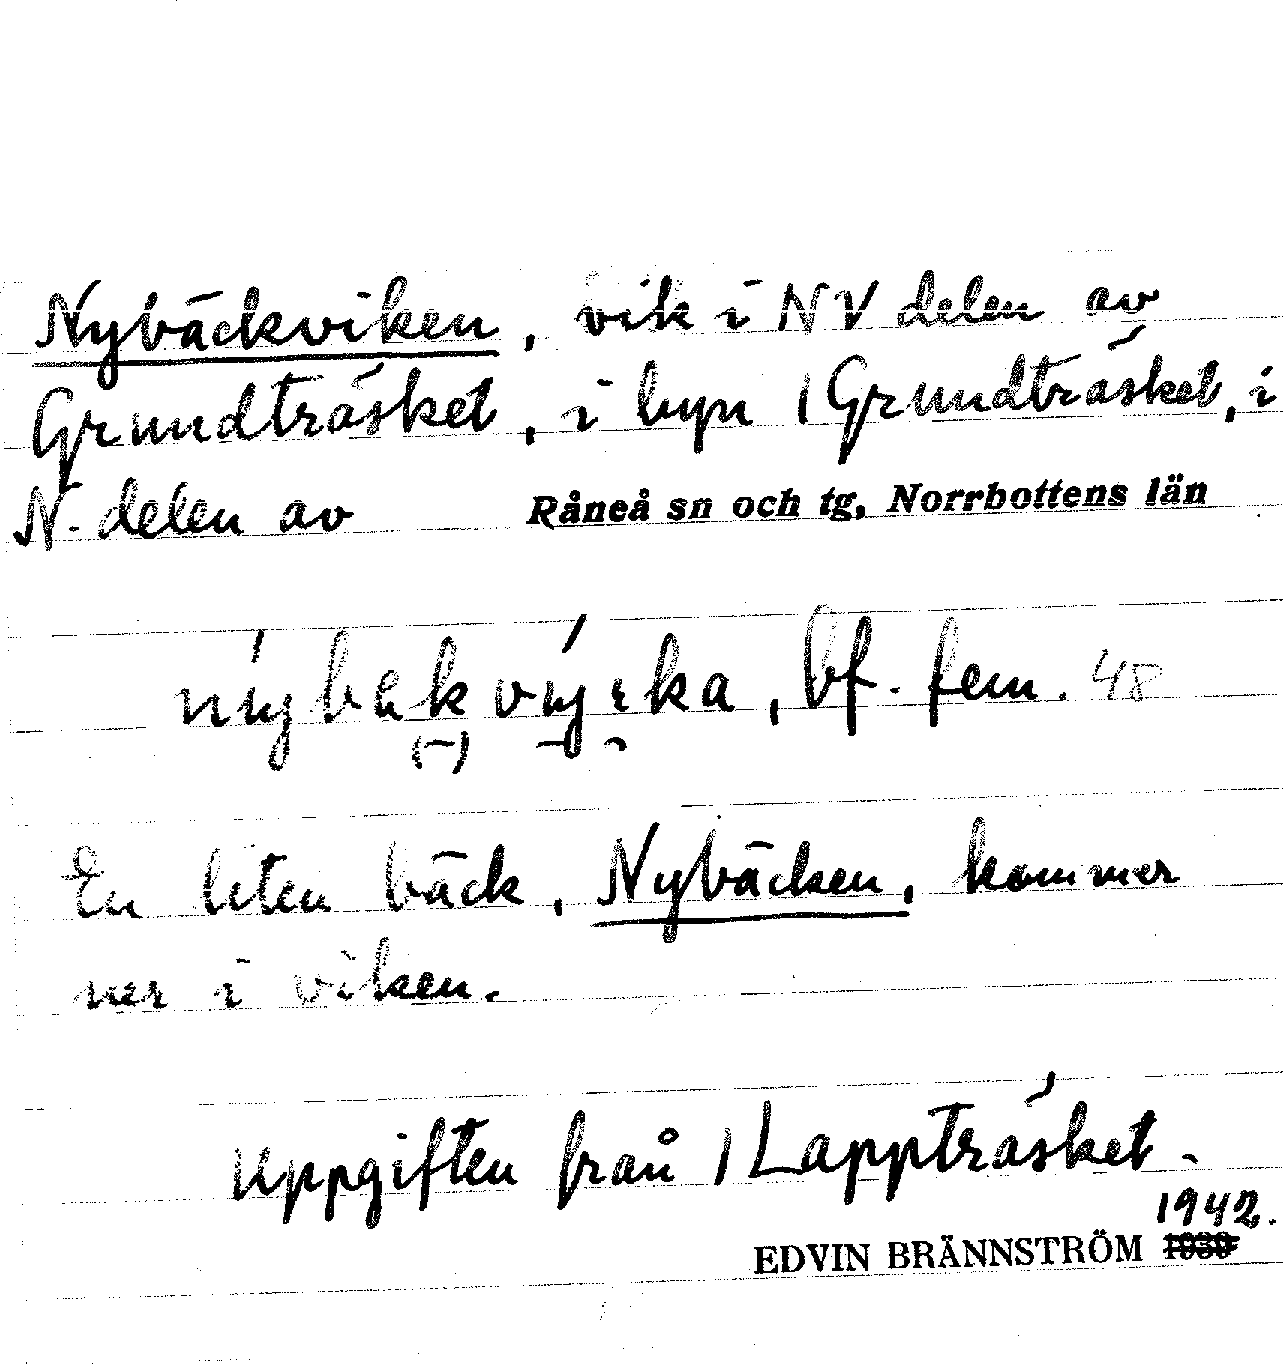 Nybäckviken, vik i NV delen av
Grundträsket, i byn 1 Grundträsket, i
N. delen av Råneå sn och tg, Norrbottens län
bf. fem. 48
En liten bäck, Nybäcken, kommer
ner i viken.
Uppgiften från 1 Lappträsket.
1942.
EDVIN BRÄNNSTRÖM 1939